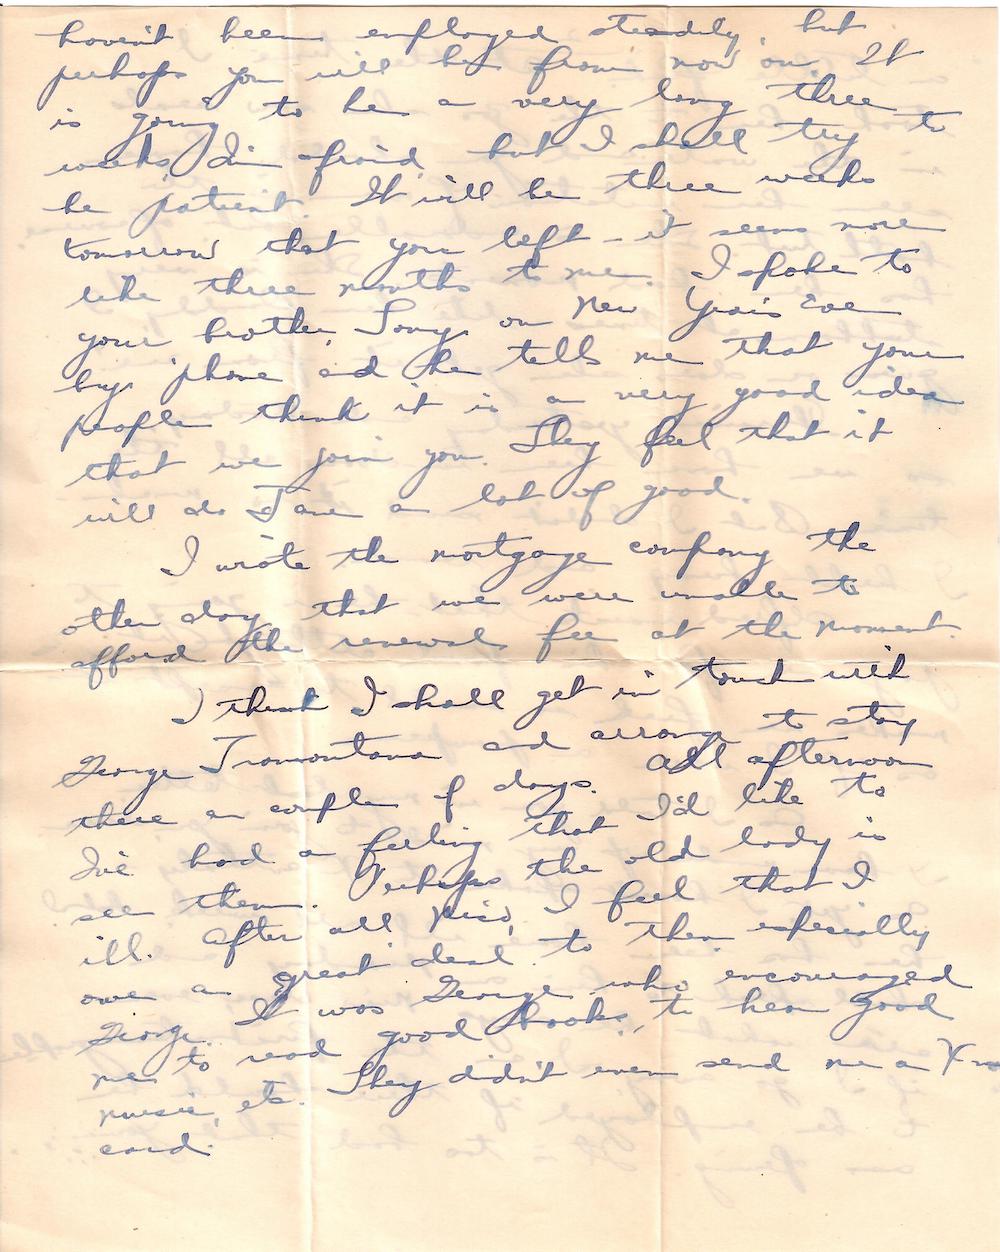 haven't been employed steadily, but
perhaps you will be from now on. It
is going to be a very long three
weeks, I'm afraid, but I shall try to
be patient. It will be three weeks
tomorrow that you left - it seems more
like three months to me. I spoke to
your brother, Tony, on New Year's Eve
by 'phone and he tells me that your
people think it is a very good idea
that we join you. They feel that it
will do Jane a lot of good.
I wrote the mortgage company the
other day that we were unable to
afford the renewal fee at the moment.
I think I shall get in touch with
George Tramontana and arrange to stay
there a couple of days. All afternoon
I've had a feeling that I'd like to
see them. Perhaps the old lady is
ill. After all, I feel that I
owe a great deal to them especially
George. It was George who encouraged
me to read good books, to hear good
music, etc. They didn't even send me a
card.